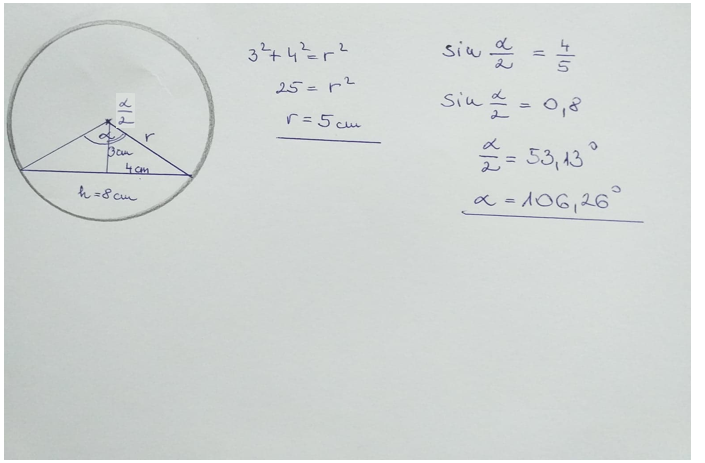 α/2
α
r
3cm
4cm
h=8cm
3²+4²=r²
25=r²
r=5cm
sin α/2 = 4/5
sin α/2 = 0,8
α/2 = 53,13°
α = 106,26°